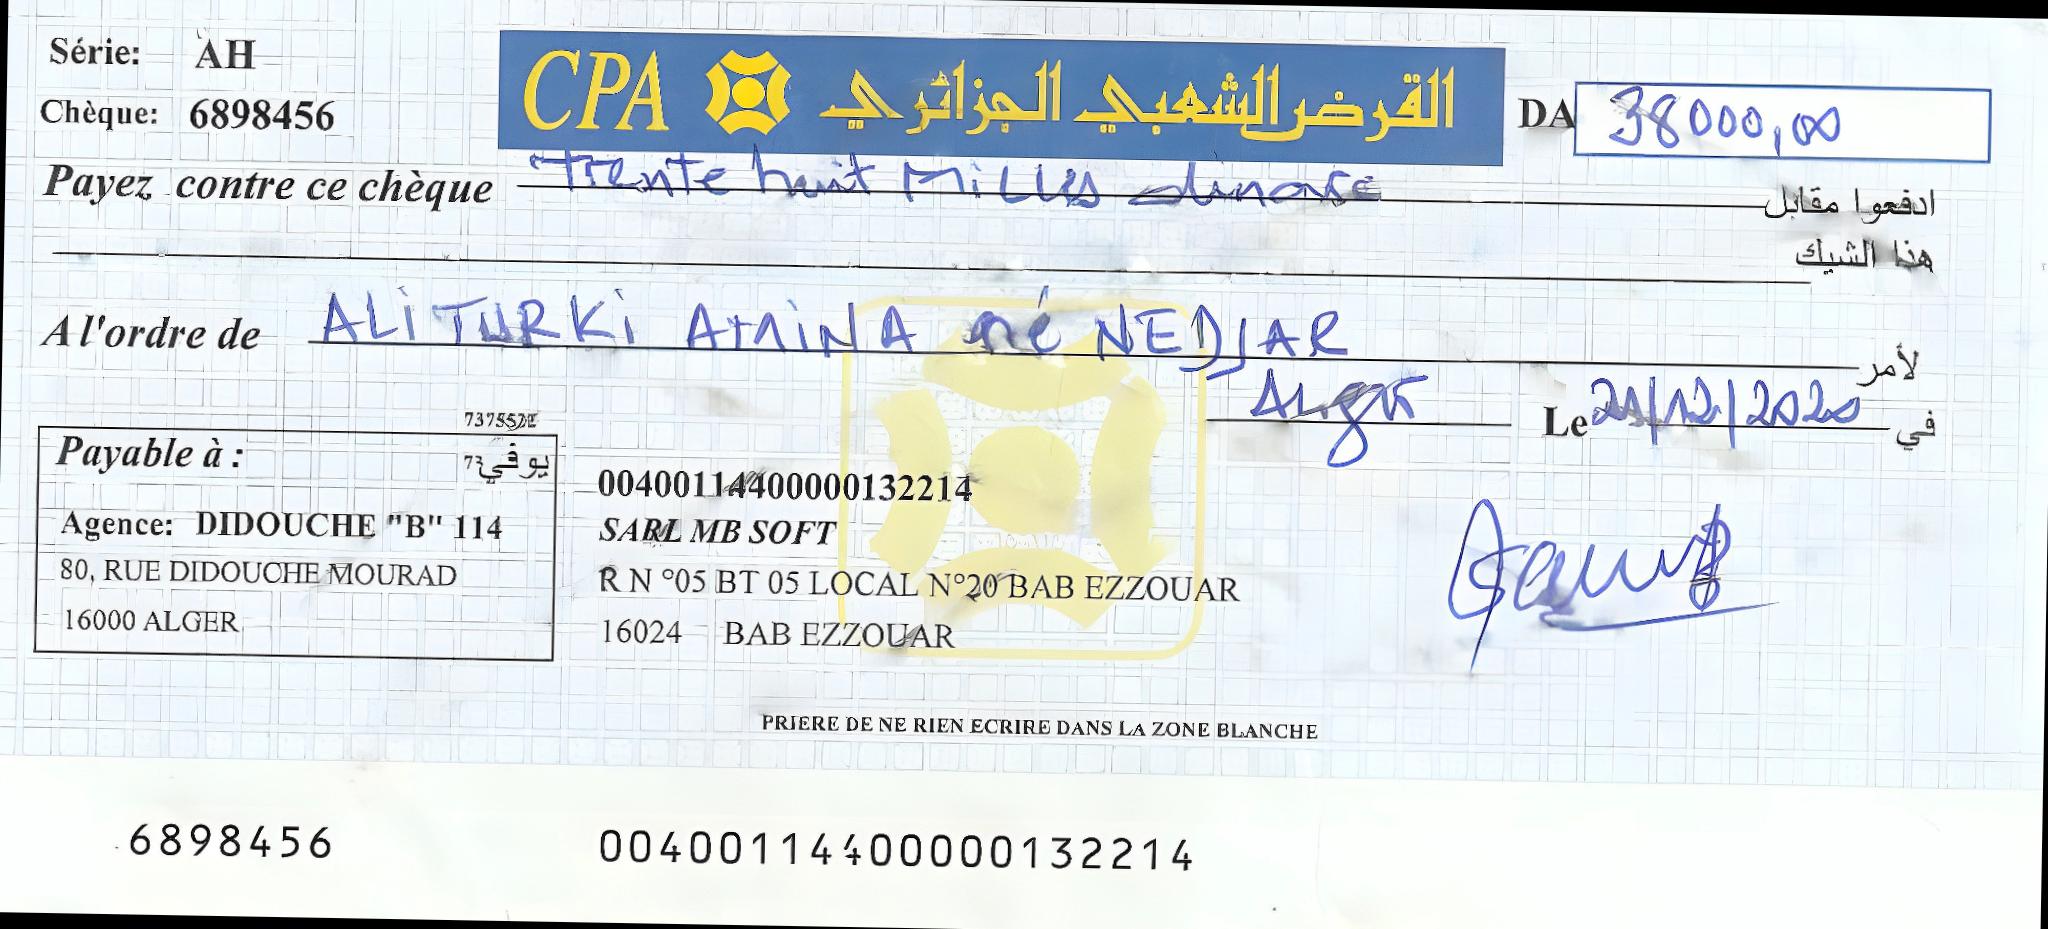 Série: AH
CPA القرض الشعبي الجزائري
DA 38000,00
Chèque: 6898456
Payez contre ce chèque Trente huit Milles dinars ادفعوا مقابل
هذا الشيك
A l'ordre de ALI TURKI AMINA né NEDJAR لأمر
Alger Le 21/12/2020 في
Payable à : يوفي
Agence: DIDOUCHE "B" 114
80, RUE DIDOUCHE MOURAD
16000 ALGER
00400114400000132214
SARL MB SOFT
R N °05 BT 05 LOCAL N°20 BAB EZZOUAR
16024 BAB EZZOUAR
PRIERE DE NE RIEN ECRIRE DANS LA ZONE BLANCHE
6898456 00400114400000132214